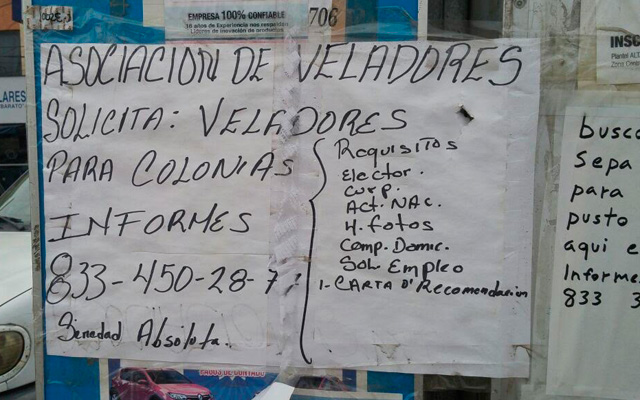 EMPRESA 100% CONFIABLE
706
ASOCIACION DE VELADORES
SOLICITA: VELADORES
PARA COLONIAS
INFORMES
833-450-28-7
Seriedad Absoluta.
REQUISITOS
Elector.
CURP.
Act. NAC.
4. fotos
Comp. Domic.
Sol Empleo
1- CARTA D' Recomendacion
INSC
Plantel ALT
busco
Sepa
para
pusto
aqui e
Informe
833 3
LARES